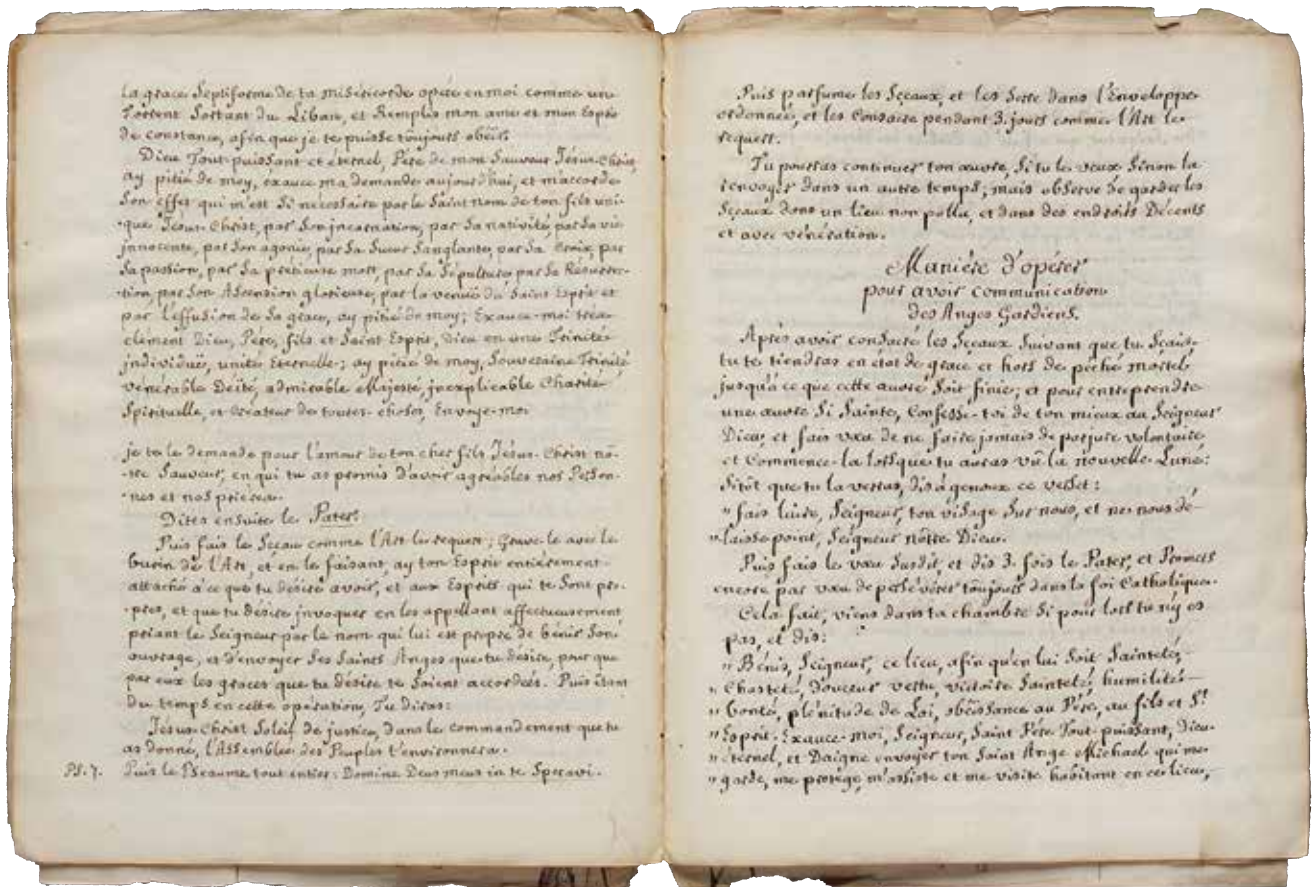 la grace Septiforme de ta miséricorde opére en moi comme un
Torrent Sortant du Liban, et Remplis mon ame et mon Esprit
de constance, afin que je te puisse toûjours obéir.
Dieu Tout-puissant et éternel, Pére de mon Sauveur Jésus-Christ,
ay pitié de moy, éxauce ma demande aujourd'hui, et m'accorde
Son effet qui m'est Si necessaire par le Saint nom de ton fils uni-
-que Jesus-Christ, par Son incarnation, par Sa nativité, par Sa vie
innocente, par Son agonie, par Sa Sueur Sanglante, par Sa Croix, par
Sa passion, par Sa prétieuse mort, par Sa Sépulture, par Sa Résurrec-
-tion, par Son Ascension glorieuse, par la venuë du Saint Esprit et
par l'effusion de Sa grace, ay pitié de moy; Exauce-moi trés
clément Dieu, Pére, fils et Saint Esprit, Dieu en une Trinité
individuë, unité Eternelle; ay pitié de moy, Souveraine Trinité
vénérable Deïté, admirable Majesté, inexplicable Charité
Spirituelle, et Créateur de toutes-choses, Envoye-moi
je te le demande pour l'amour de ton cher fils Jésus-Christ nô-
-tre Sauveur, en qui tu as promis d'avoir agréables nos Person-
-nes et nos priéres.
Dites ensuite le Pater.
Puis fais le Sçeau comme l'Art le requert; Grave-le avec le
burin de l'Art, et en le faisant, ay ton Esprit entiérement
attaché à ce que tu désire avoir, et aux Esprits qui te Sont pro-
-pres, et que tu désire invoquer en les appellant affectueusement
priant le Seigneur par le nom qui lui est propre de bénir Son
ouvrage, et d'envoyer Ses Saints Anges que tu désire, pour que
par eux les graces que tu désire te Soient accordées. Puis étant
du temps en cette opération, Tu diras:
Jésus-Christ Soleil de justice, dans le commandement que tu
as donné, l'Assemblée des Peuples t'environnera.
Ps. 7. Puis le Pseaume tout entier: Domine Deus meus in te Speravi.
Puis parfume les Sçeaux, et les Serre dans l'enveloppe
ordonnée, et les Consacre pendant 3. jours comme l'Art le
requert.
Tu pourras continuer ton œuvre, Si tu le veux Sinon la
renvoyer dans un autre temps, mais observe de garder les
Sçeaux dans un lieu non pollu, et dans des endroits Décents
et avec vénération.
Maniére d'opérer
pour avoir communication
des Anges Gardiens.
Aprés avoir consacré les Sçeaux Suivant que tu Sçais,
tu te tiendras en état de grace et hors de péché mortel
jusqu'à ce que cette œuvre Soit finie; et pour entreprendre
une œuvre Si Sainte, Confesse-toi de ton mieux au Seigneur
Dieu, et fais vœu de ne faire jamais de parjure volontaire
et Commence-la lorsque tu auras vû la nouvelle Lune:
Sitôt que tu la verras, dis à genoux ce verset:
"fais luire, Seigneur, ton visage Sur nous, et ne nous dé-
"laisse point, Seigneur nôtre Dieu.
Puis fais le vœu Susdit, et dis 3. fois le Pater, et Promets
encore par vœu de persévérer toûjours dans la foi Catholique.
Cela fait, viens dans ta chambre Si pour lors tu n'y es
pas, et dis:
"Bénis, Seigneur, ce lieu, afin qu'en lui Soit Sainteté,
"Chasteté, douceur vertu, victoire Sainteté, humilité
"bonté, plénitude de Loi, obéissance au Pére, au fils et St
"Esprit. Exauce-moi, Seigneur, Saint Pére Tout-puissant, Dieu
"éternel, et Daigne envoyer ton Saint Ange Michael qui me
"garde, me protége, m'assiste et me visite habitant en ce lieu,